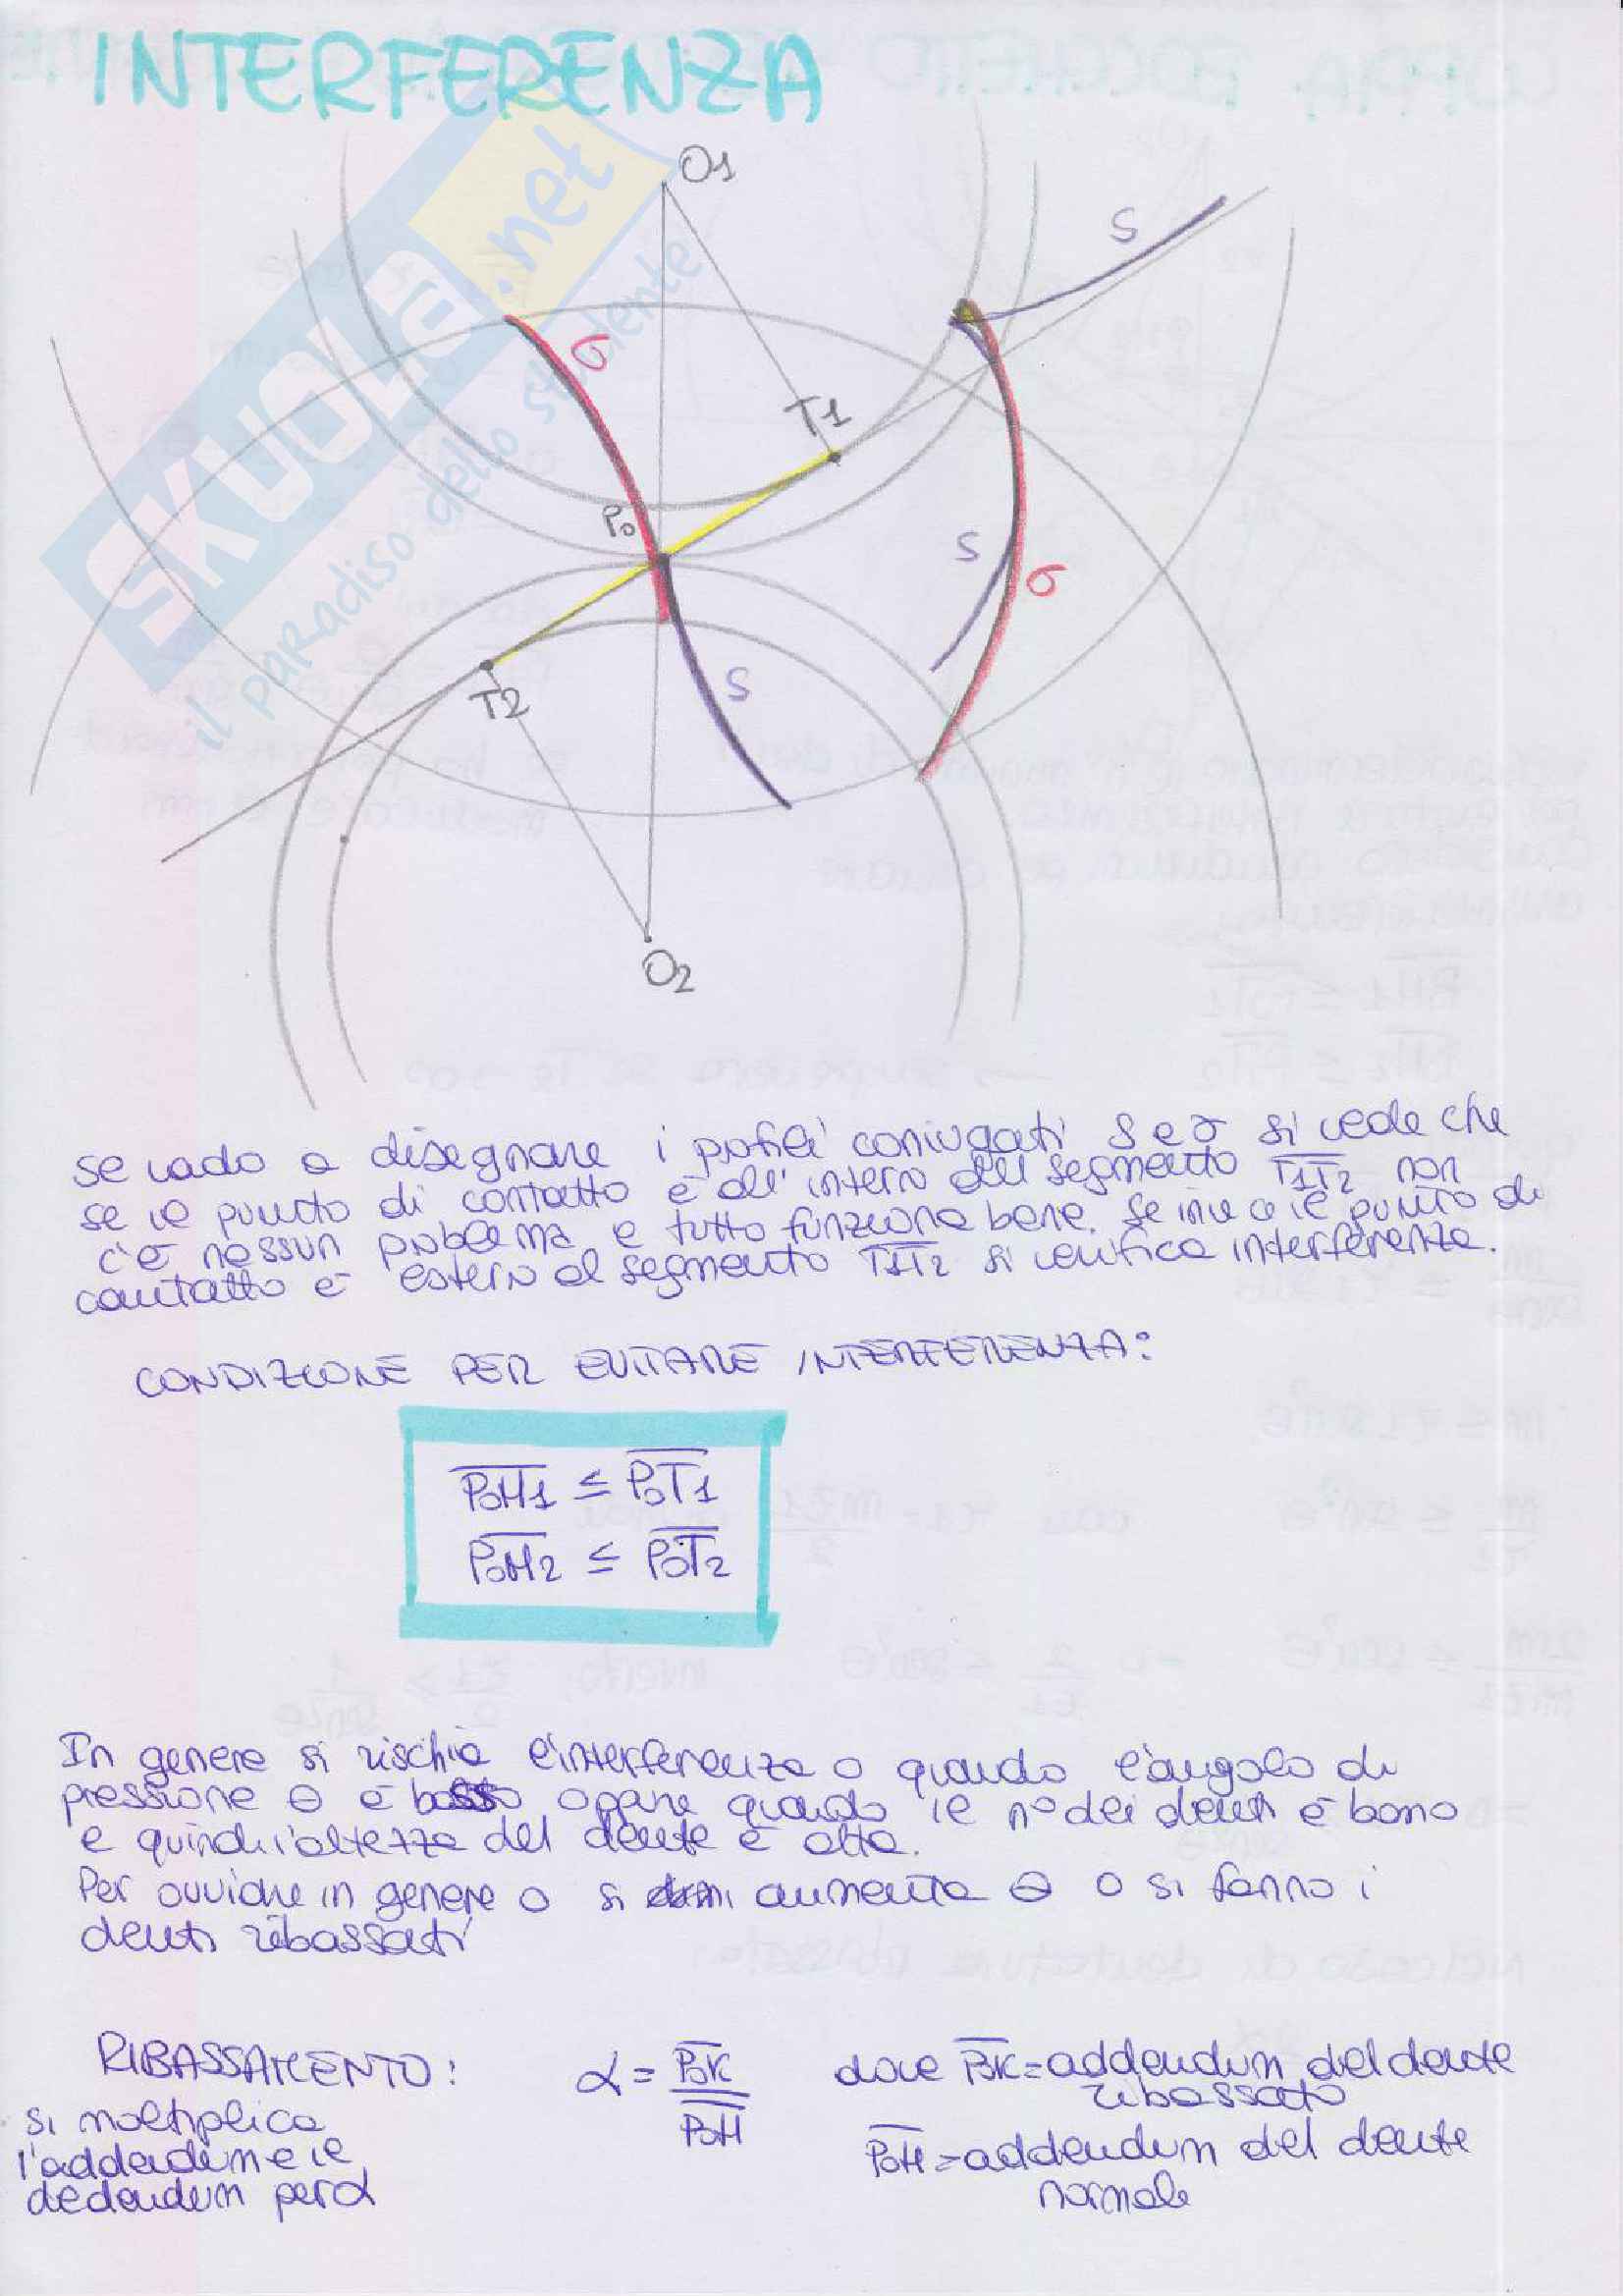 INTERFERENZA
O1
S
σ
T1
P₀
S
σ
S
T2
O2
SKUOLA.net
il paradiso dello studente
se vado a disegnare i profili coniugati S e σ si vede che
se il punto di contatto è all'interno del segmento T1T2 non
c'è nessun problema e tutto funziona bene. Se invece il punto di
contatto è esterno al segmento T1T2 si verifica interferenza.
CONDIZIONE PER EVITARE INTERFERENZA:
P₀H1 ≤ P₀T1
P₀H2 ≤ P₀T2
In genere si rischia l'interferenza o quando l'angolo di
pressione θ è basso oppure quando il n° dei denti è basso
e quindi l'altezza del dente è alta.
Per ovviare in genere o si aumenta θ o si fanno i
denti ribassati
RIBASSAMENTO:
si moltiplica
l'addendum e il
dedendum per α
α = P₀K / P₀H
dove P₀K = addendum del dente
ribassato
P₀H = addendum del dente
normale